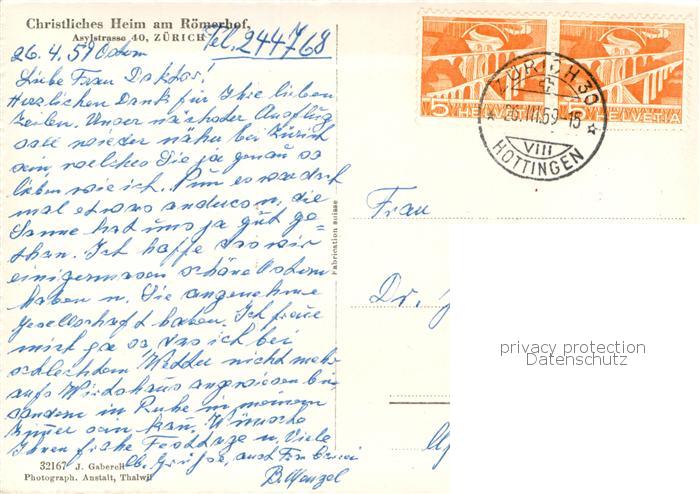 Christliches Heim am Römerhof,
Asylstrasse 40, ZÜRICH Tel. 244768
26.4.59 Ostern
Liebe Frau Doktor!
Herzlichen Dank für Ihre lieben
Zeilen. Unser nächster Ausflug
soll wieder näher bei Zürich
sein, welches Sie ja genau so
lieben wie ich. Nun es war doch
mal etwas anderes u. die
Sonne hat uns ja gut ge=
than. Ich hoffe das wir
einigermasen schöne Ostern
haben u. Sie angenehme
Gesellschaft haben. Ich freue
mich ja so das ich bei
schlechtem Wetter nicht mehr
aufs Wirtshaus angewiesen bin
sondern in Ruhe in meinem
Zimmer sein kan. Wünsche
Ihnen frohe Festtage u. Viele
lb. Grüsse, auch Frau
B. Menzel
32167 J. Gaberell
Photograph. Anstalt, Thalwil
Fabrication suisse
5 HELVETIA 5 HELVETIA
ZÜRICH 30
26.III.59-15
VIII
HOTTINGEN
Frau
Dr.
privacy protection
Datenschutz